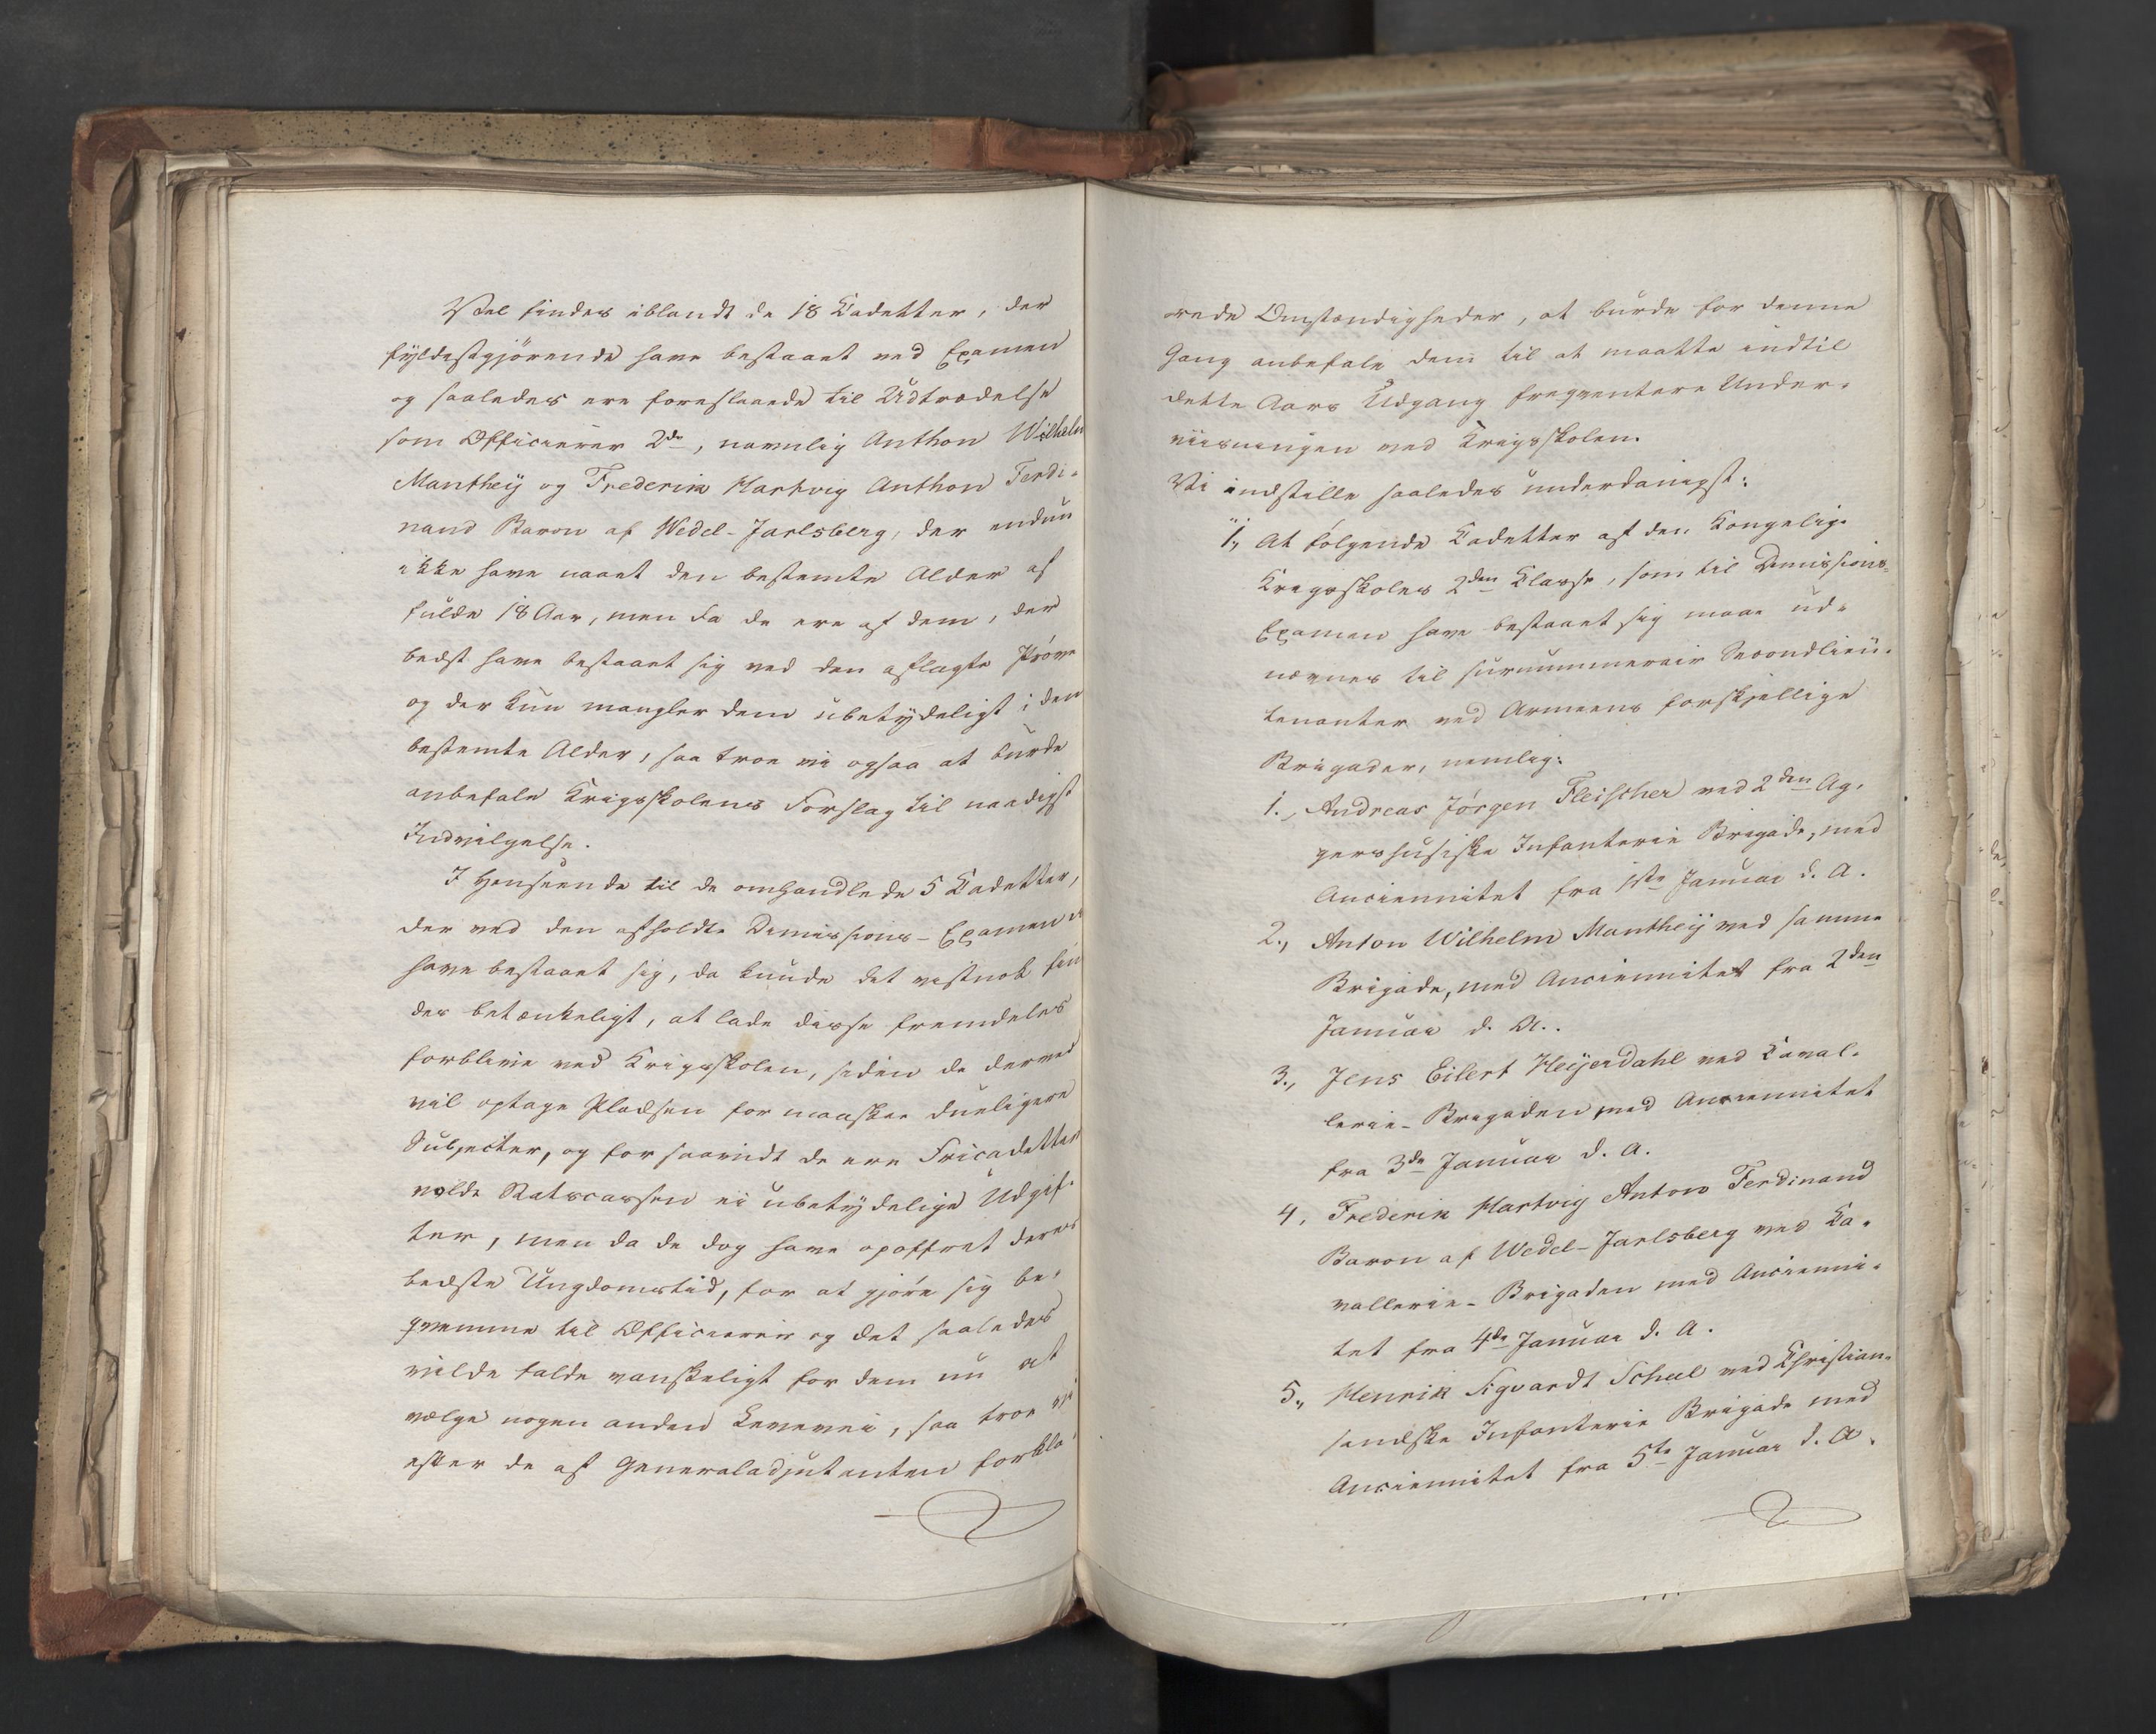 Vel findes iblandt de 18 Kadetter, der
fyldestgjörende have bestaaet ved Examen
og saaledes ere foreslaaede til Udtrædelse
som Officierer 2de, navnlig Anthon Wilhelm
Mantheÿ og Frederik Hartvig Anthon Ferdi-
nand Baron af Wedel-Jarlsberg, der endnu
ikke have naaet den bestemte Alder af
fulde 18 Aar, men da de ere af dem, der
bedst have bestaaet sig ved den aflagte Pröve
og der kun mangler dem ubetydeligt i den
bestemte Alder, saa troe vi ogsaa at burde
anbefale Krigsskolens Forslag til naadigst
Indvilgelse.
I Henseende til de omhandlede 5 Kadetter,
der ved den afholdte Dimissions-Examen ei
have bestaaet sig, da kunde det vistnok fin
des betænkeligt, at lade disse fremdeles
forblive ved Krigsskolen, siden de derved
vil optage Pladsen for maaskee dueligere
Subjecter, og forsaavidt de ere Fricadetter
volde Statscassen ei ubetydelige Udgif-
ter, men da de dog have opoffret deres
bedste Ungdomstid, for at gjöre sig be-
qvemme til Officierer og det saaledes
vilde falde vanskeligt for dem nu at
vælge nogen anden Levevei, saa troe vi
efter de af Generaladjutanten forkla-
rede Omstændigheder, at burde for denne
Gang anbefale dem til at maatte indtil
dette Aars Udgang freqventere Under-
viisningen ved Krigsskolen.
Vi indstille saaledes underdanigst:
"1, At følgende Kadetter af den Kongelige
Krigsskoles 2den Klasse, som til Dimissions-
Examen have bestaaet sig maae ud-
nævnes til surnummerair Secondlieu-
tenanter ved Armeens forskjellige
Brigader, nemlig:
1., Andreas Jörgen Fleischer ved 2den Ag-
gershusiske Infanterie Brigade, med
Anciennitet fra 1ste Januar d. A.
2., Anton Wilhelm Mantheÿ ved samme
Brigade, med Anciennitet fra 2den
Januar d. A..
3., Jens Eilert Heÿerdahl ved Caval-
lerie-Brigaden med Anciennitet
fra 3de Januar d. A.
4, Frederik Hartvig Anton Ferdinand
Baron af Wedel-Jarlsberg ved Ca-
vallerie-Brigaden med Ancienni-
tet fra 4de Januar d. A.
5., Henrik Sigvardt Scheel ved Christian-
sandske Infanterie Brigade med
Anciennitet fra 5te Januar d. A.